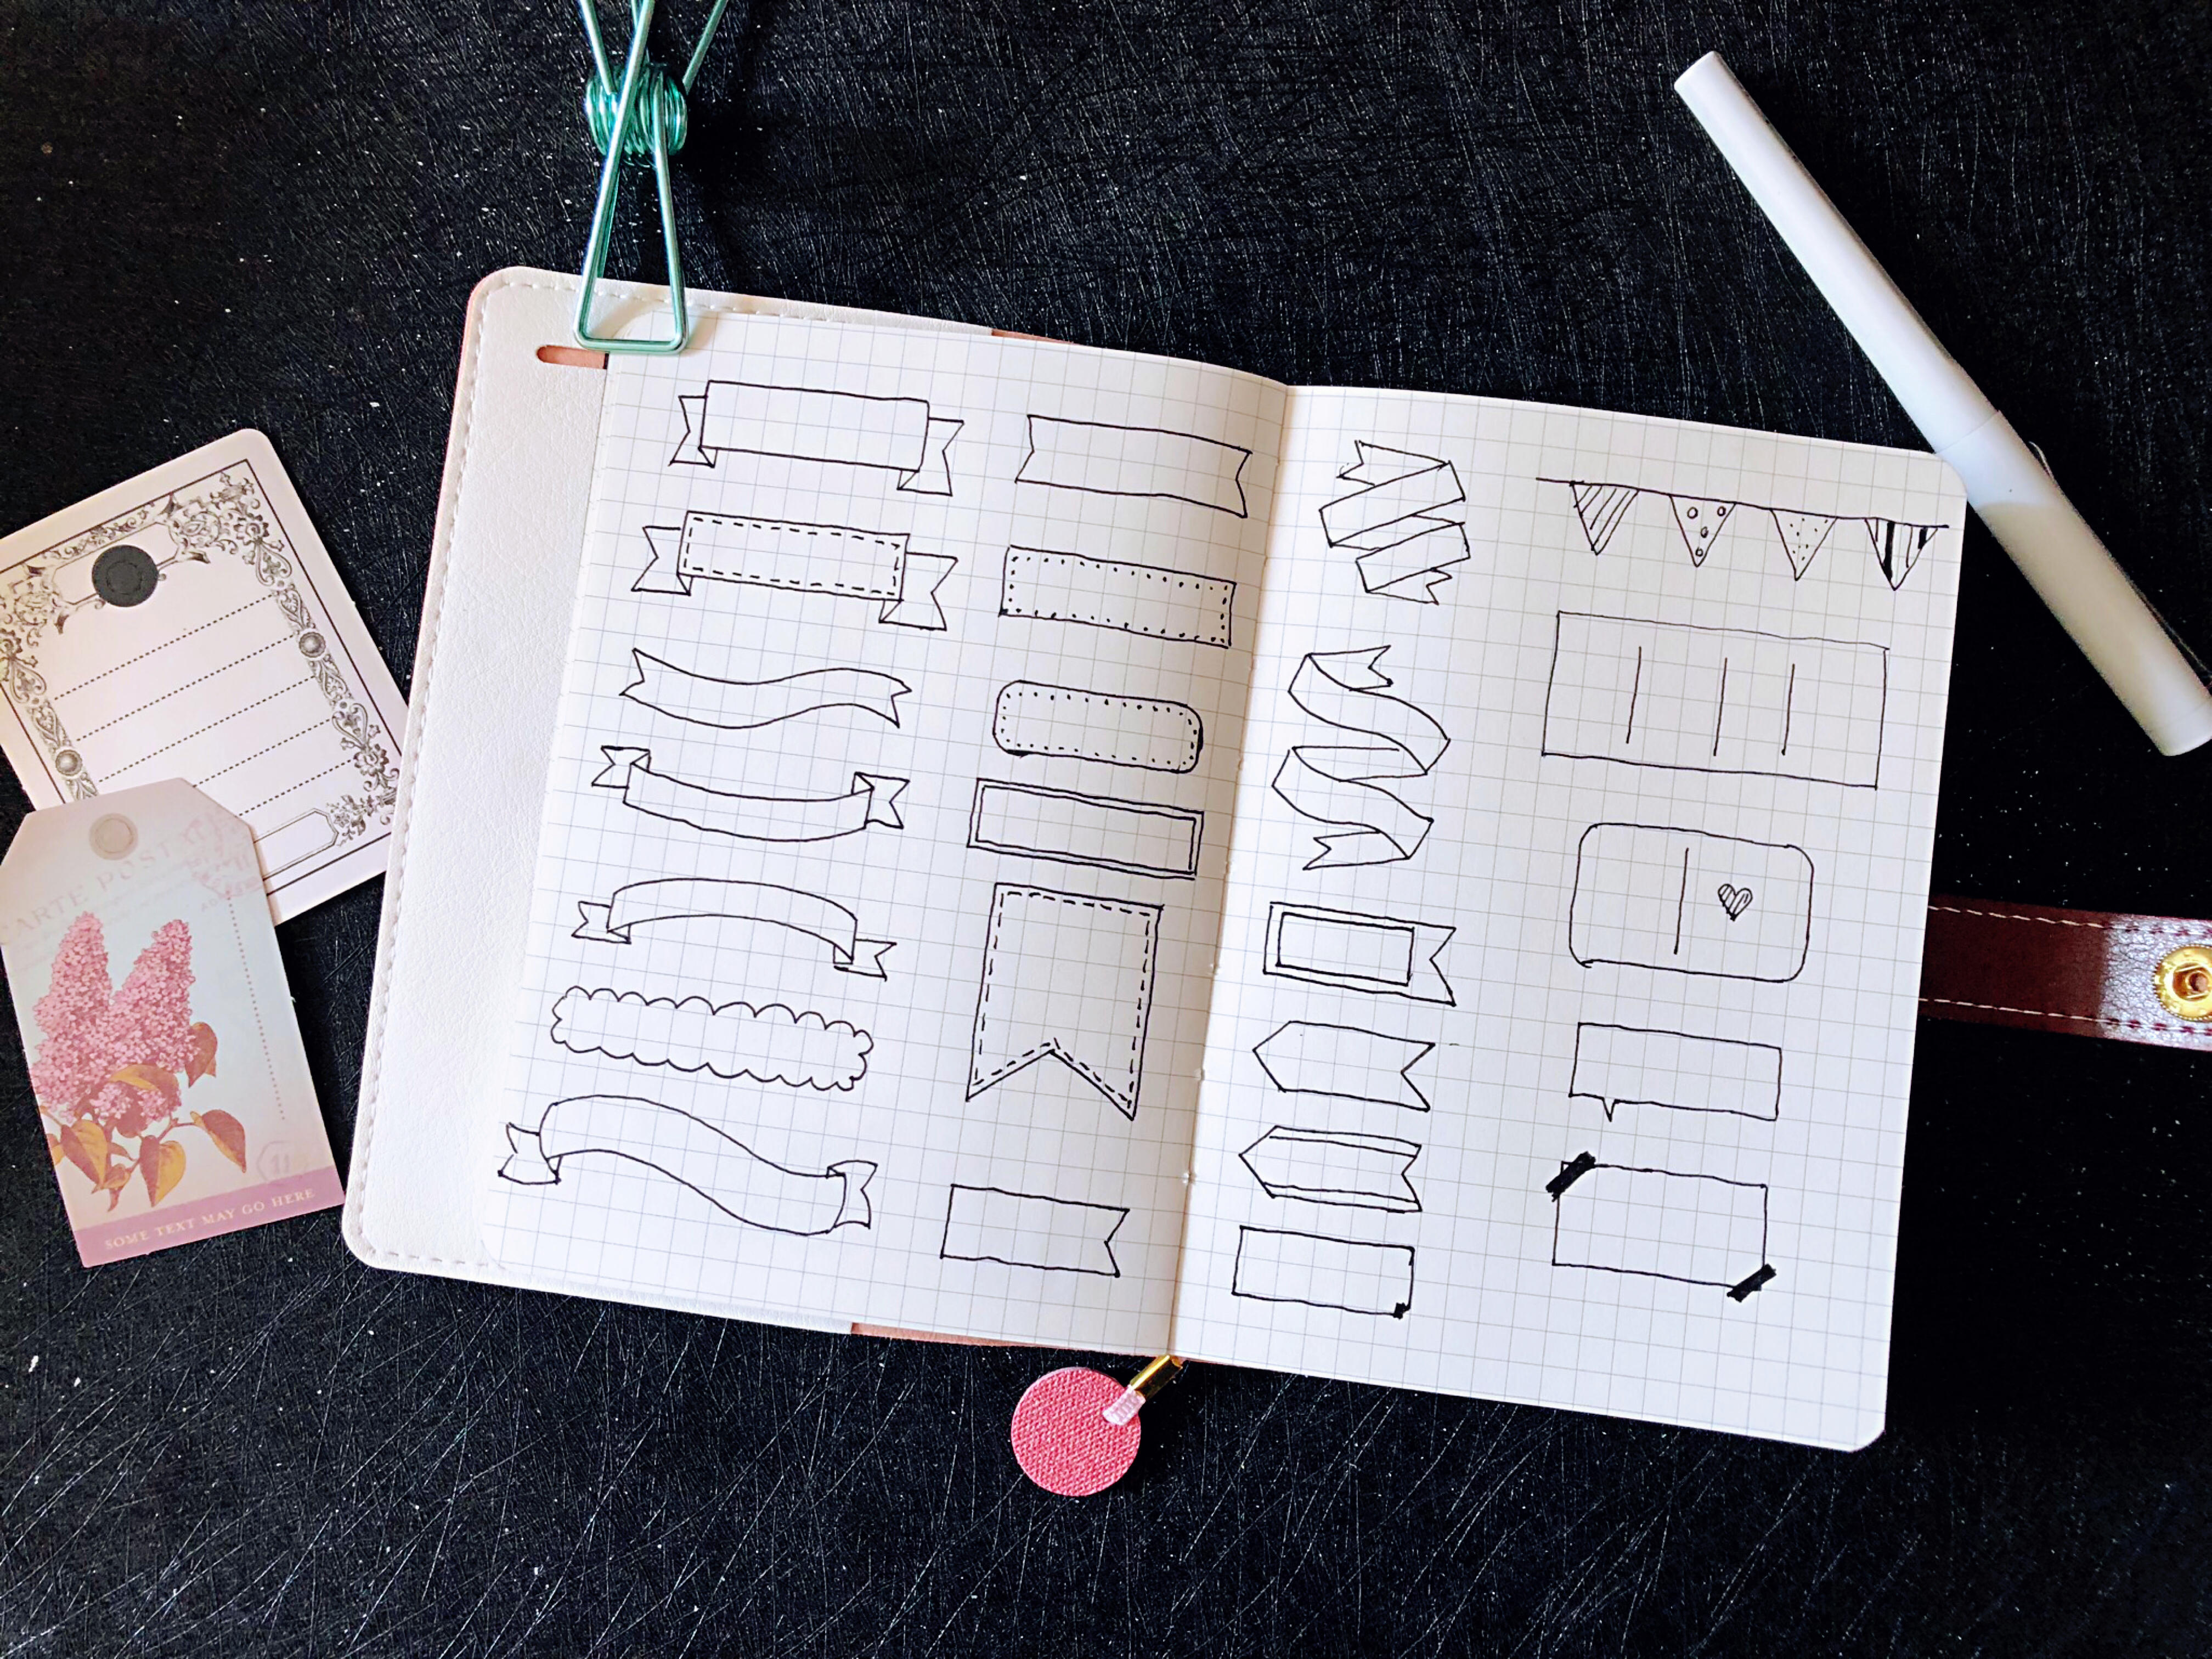 CARTE POSTALE
SOME TEXT MAY GO HERE